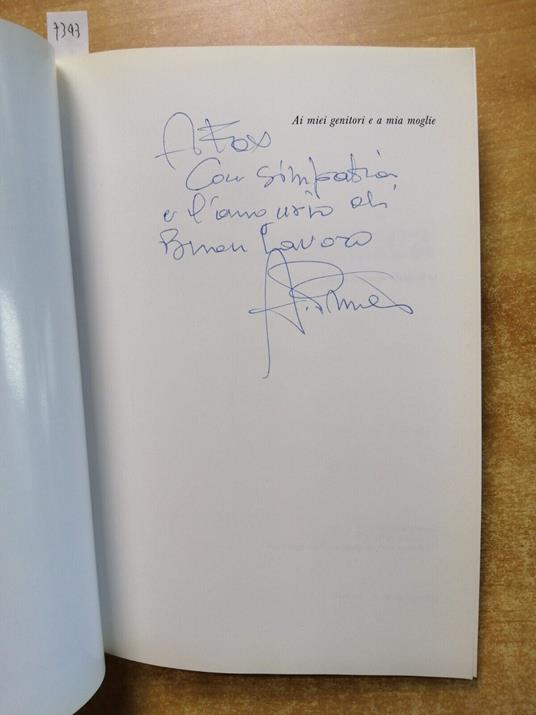 7393
Ai miei genitori e a mia moglie
A Fox
Con simpatia
e l'augurio di
Buon Lavoro